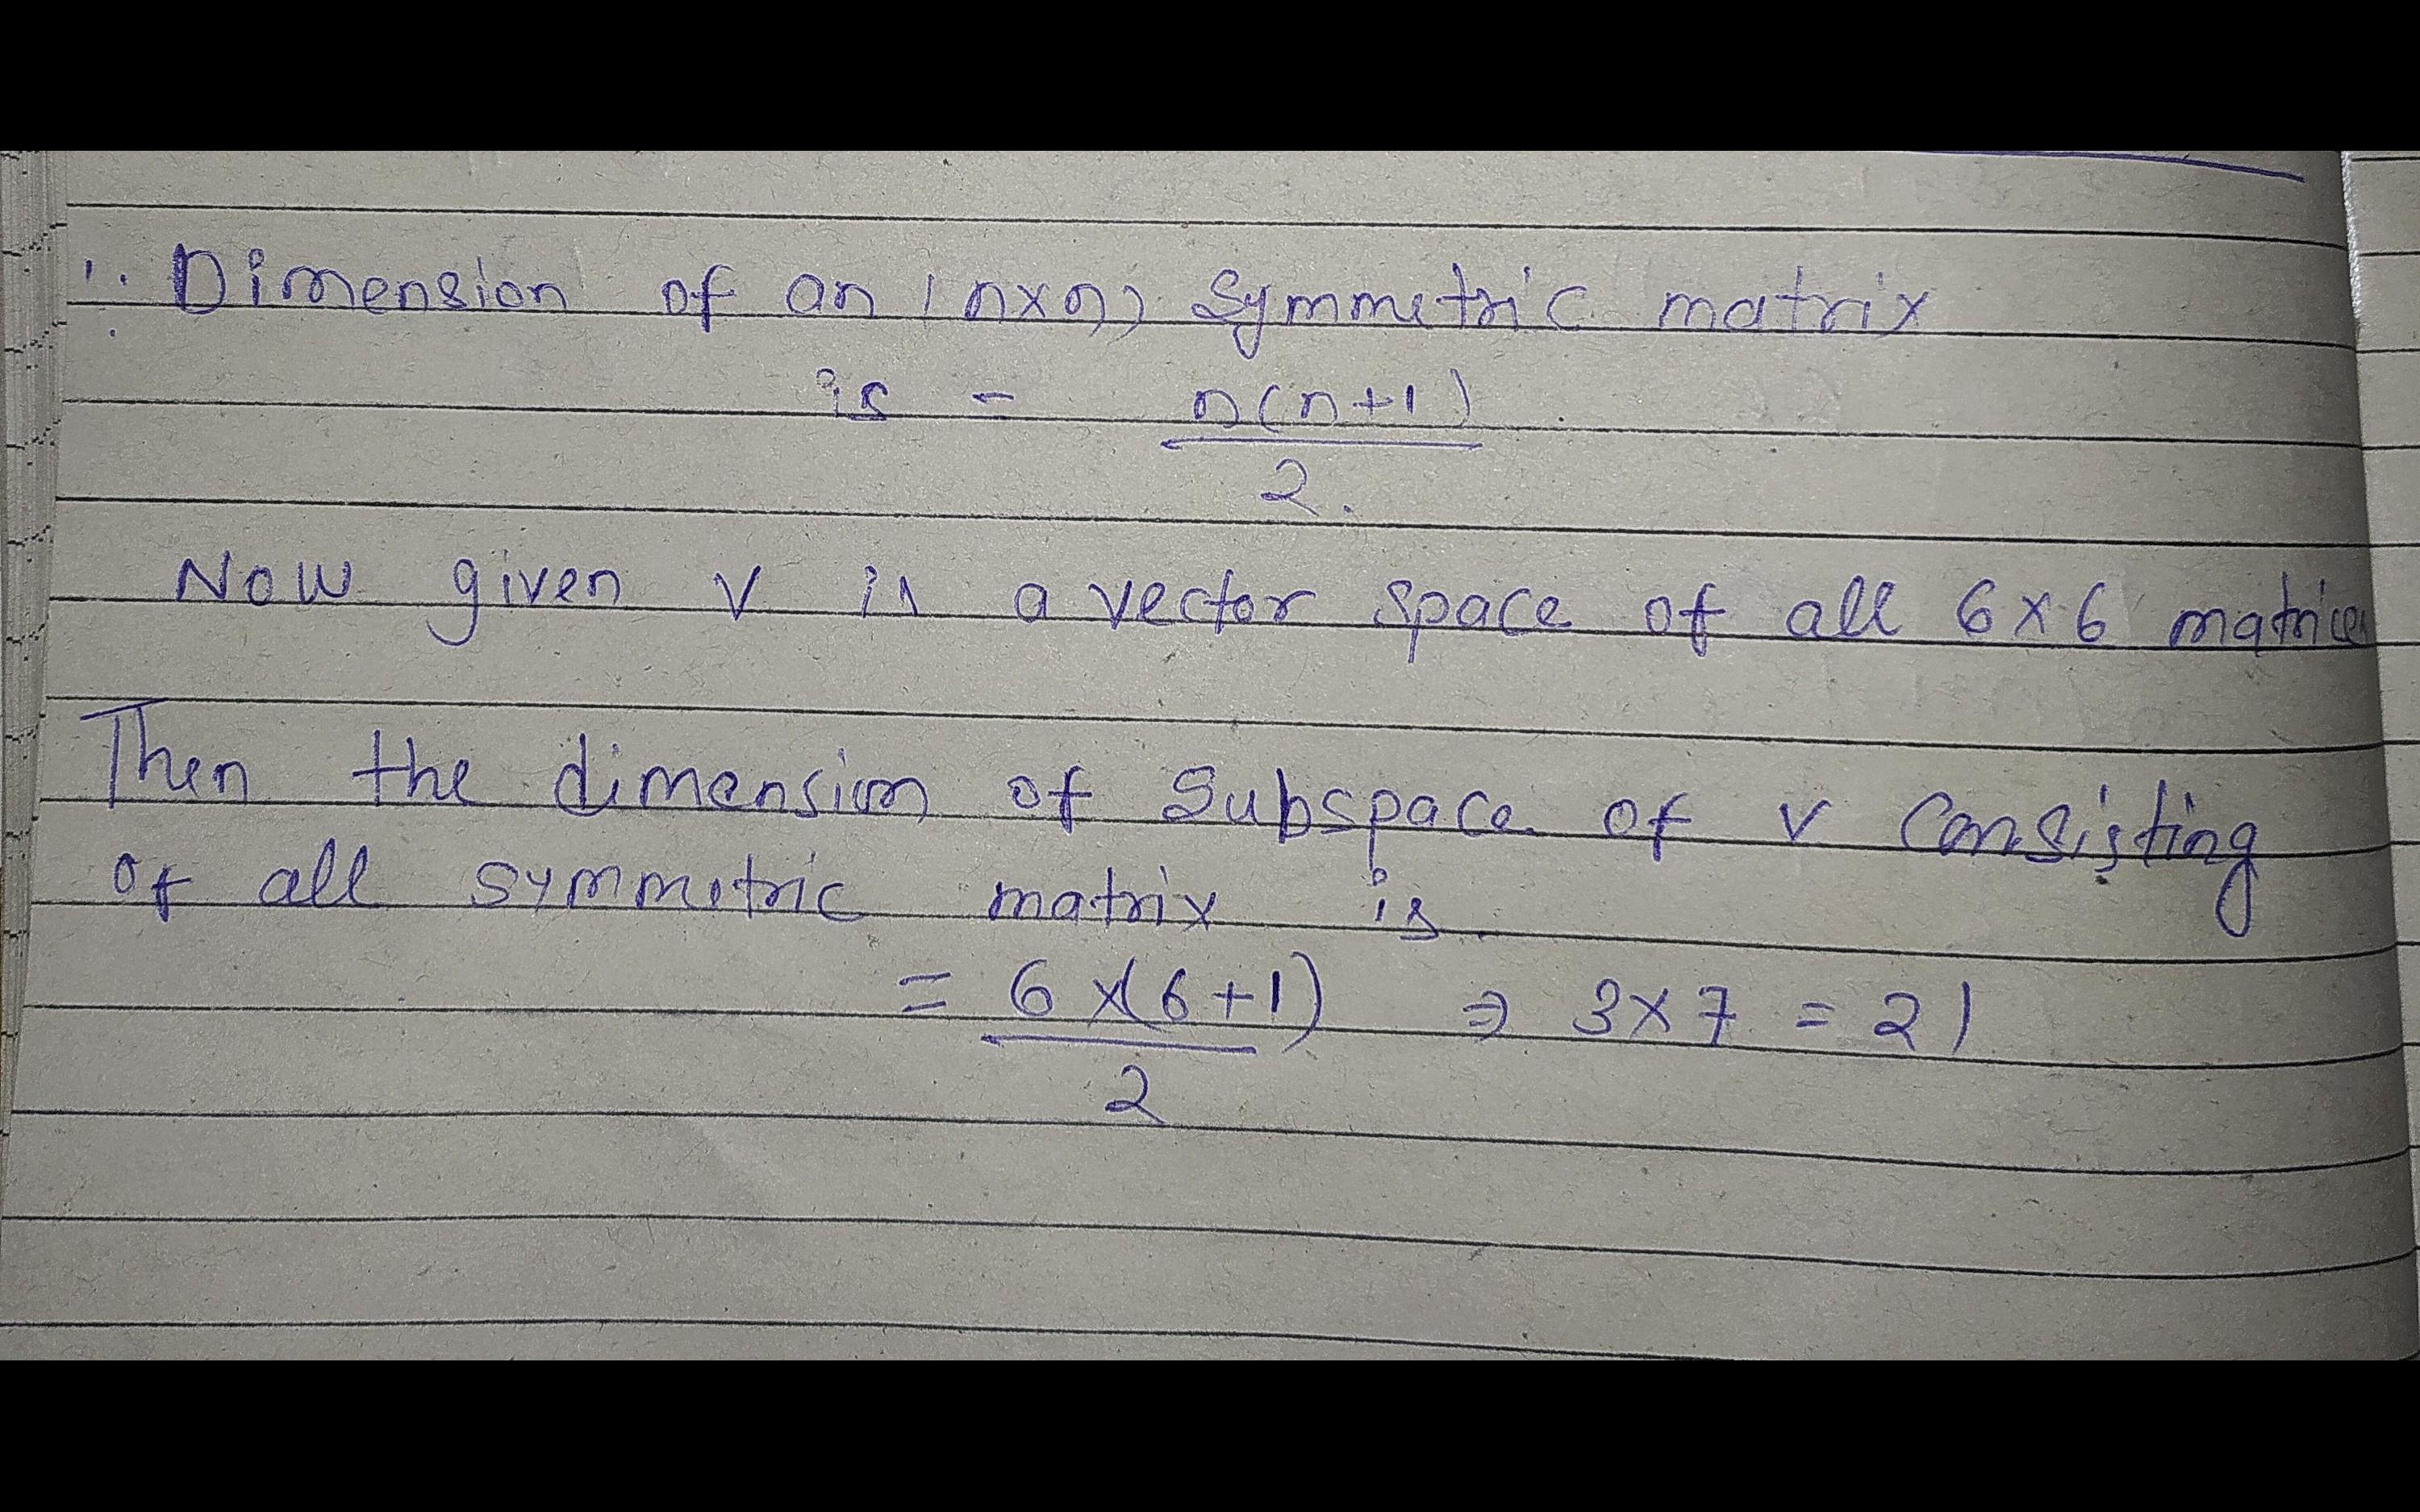 ∵ Dimension of an (n×n) Symmetric matrix
is = n(n+1)
2.
Now given V is a vector space of all 6×6 matrices
Then the dimension of Subspace of V Consisting
of all symmetric matrix is
= 6×(6+1) ⇒ 3×7 = 21
2